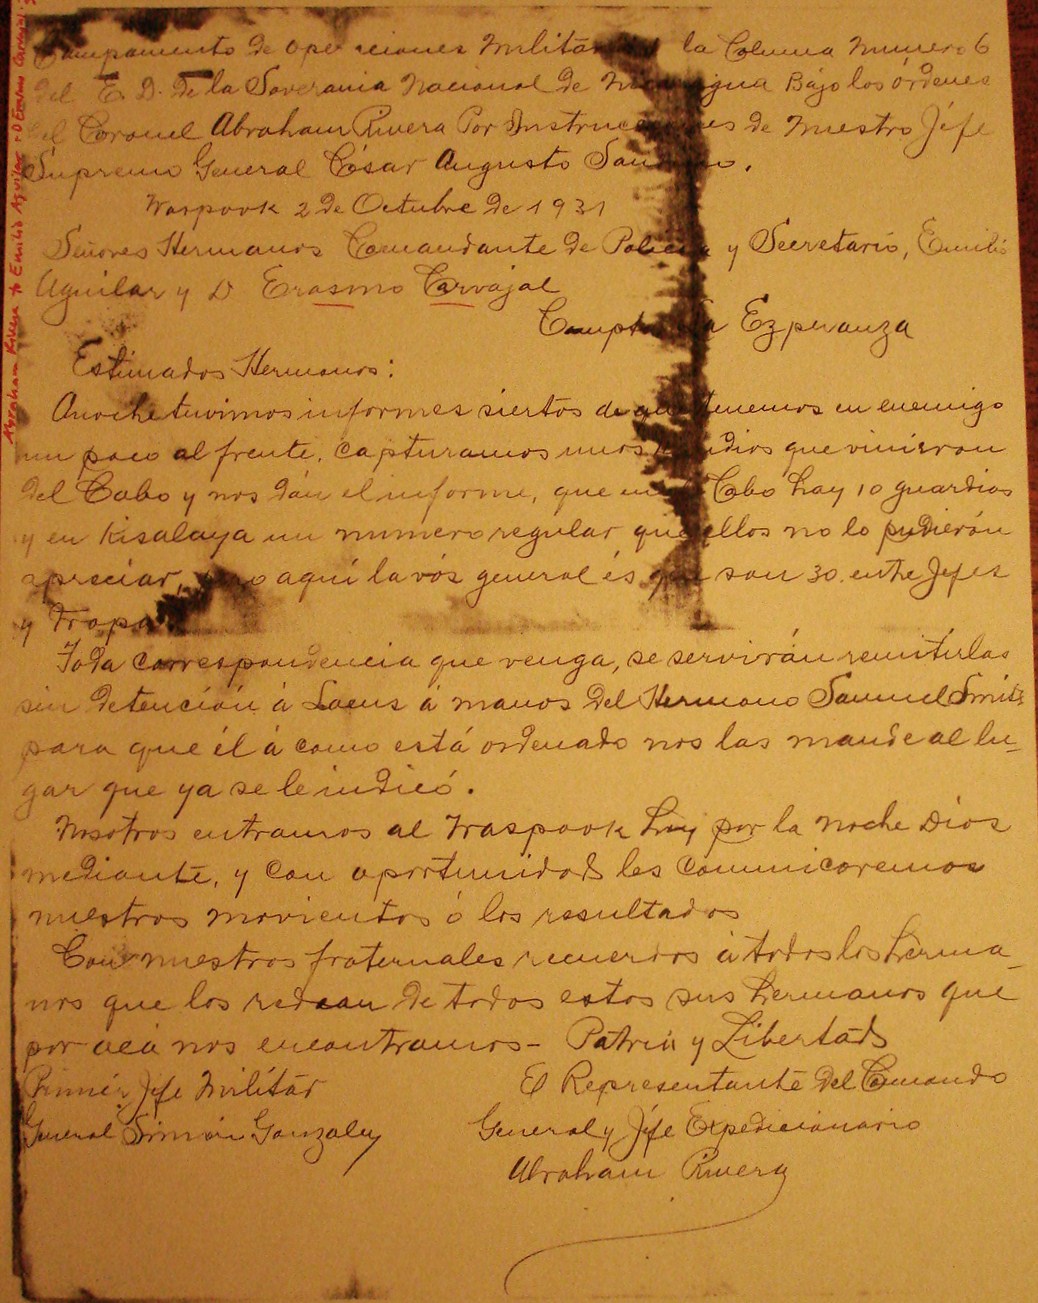 Campamento de operaciones Militares la Columna Numero 6
del E. D. de la Soverania Nacional de Nicaragua Bajo los órdenes
del Coronel Abraham Rivera Por Instrucciones de Nuestro Jéfe
Supremo General César Augusto Sandino.
Waspook 2 de Octubre de 1931
Señores Hermanos Comandante de Policía y Secretario, Emilio
Aguilar y D Erasmo Carvajal
Campto. La Ezperanza
Estimados Hermanos:
Anoche tuvimos informes siertos de que tenemos en enemigo
un poco al frente. Capturamos unos indios que vinieron
del Cabo y nos dán el informe, que en Cabo hay 10 guardias
y en Kisalaya un numero regular que ellos no lo pudierón
apreciar, pero aquí la vós general és que son 30. entre Jefes
y Tropa
Toda correspondencia que venga, se servirán remitirlas
sin detención á Saeus á manos del Hermano Samuel Smith
para que él á como está ordenado nos las mande al lu-
gar que ya se le indicó.
Nosotros entramos al Waspook hoy por la noche Dios
mediante, y con oportunidad les comunicaremos
nuestros movientos ó los resultados
Con nuestros fraternales recuerdos á todos los herma-
nos que los rodean de todos estos sus hermanos que
por acá nos encontramos- Patria y Libertad
Primér Jefe Milítar
General Simón Gonzalez
El Representante del Comando
General y Jéfe Expedicionario
Abraham Rivera
Abraham Rivera to Emilio Aguilar y D Erasmo Carvajal